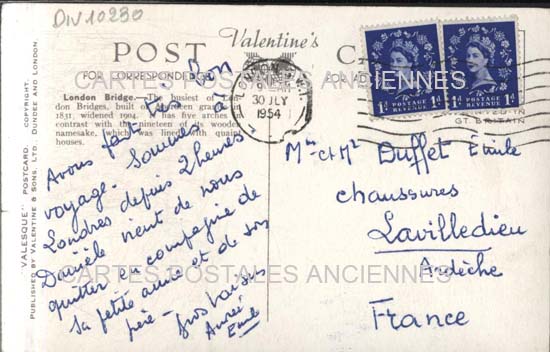 DIV 10230
POST
Valentine's
FOR CORRESPONDENCE
London Bridge.—The busiest of Lon-
don Bridges, built of Aberdeen granite in
1831, widened 1904. Its five arches in
contrast with the nineteen of its wooden
namesake, which was lined with quaint
houses.
Avons fait très bon
voyage. Sommes à
Londres depuis 2 heures.
Danièle vient de nous
quitter en compagnie de
sa petite amie et de son
père - gros baisers
Emile
LONDON
30 JLY
1954
POSTAGE
REVENUE
1D
1D
POSTAGE
REVENUE
1D
1D
GT. BRITAIN
Mr et Me Duffet Emile
chaussures
Lavilledieu
Ardèche
France
"VALESQUE" POSTCARD. COPYRIGHT.
PUBLISHED BY VALENTINE & SONS, LTD. DUNDEE AND LONDON.
CARTES POSTALES ANCIENNES
CARTES POSTALES ANCIENNES